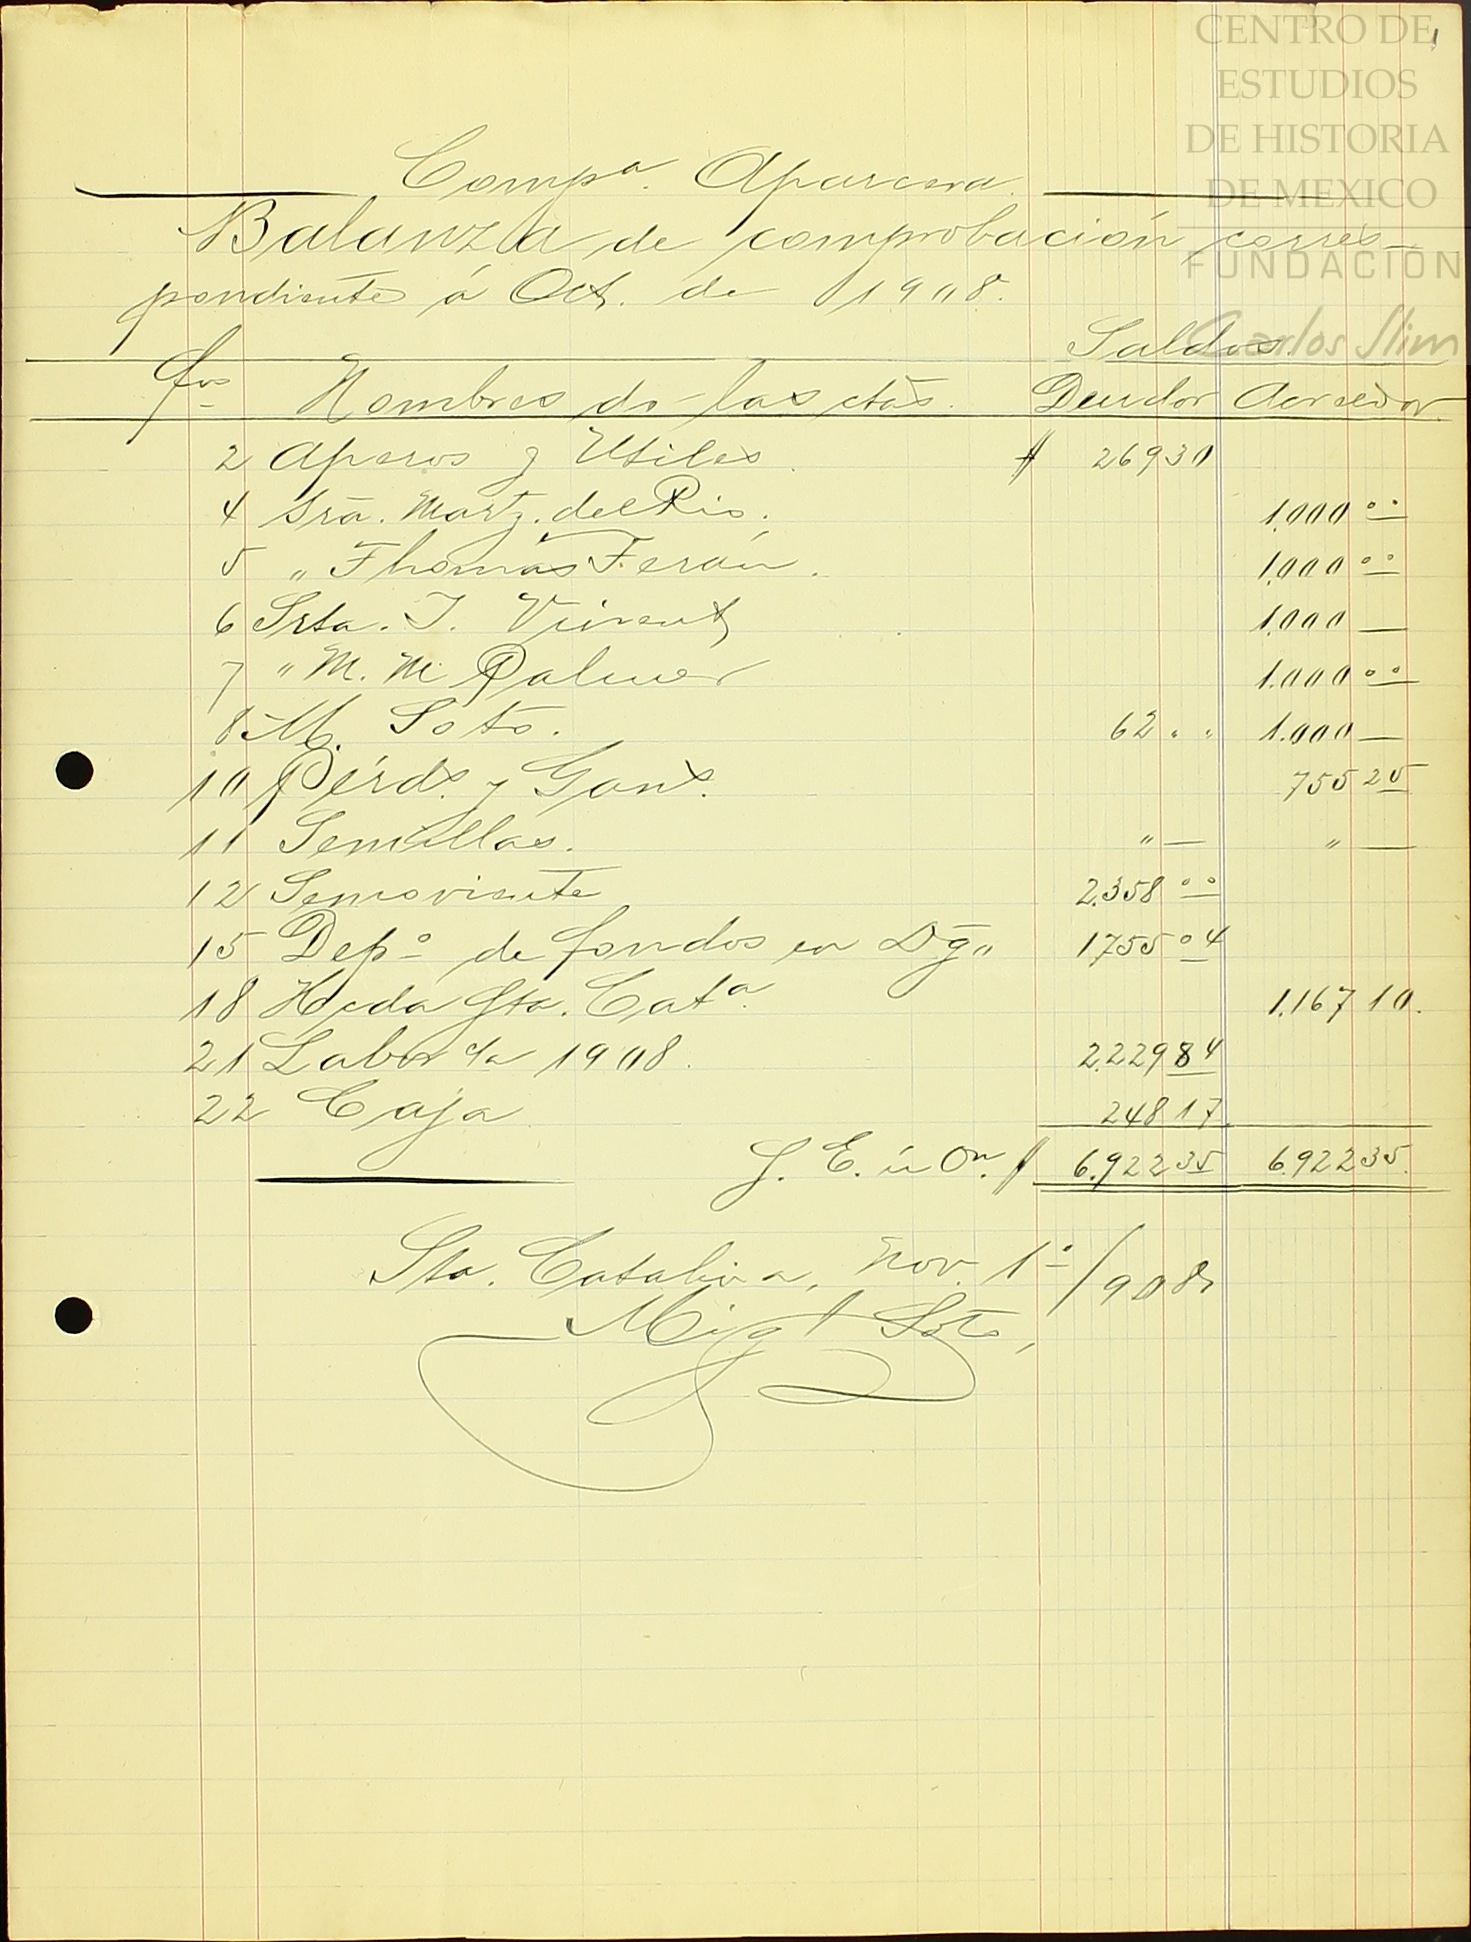 CENTRO DE
ESTUDIOS
DE HISTORIA
DE MEXICO
FUNDACIÓN
Carlos Slim
1
Compª. Aparcera.
Balanza de comprobación corres-
pondiente á Oct. de 1908.
Saldos.
Fos Nombres de las ctas. Deudor Acreedor
2 Aperos y Utiles. $ 269 30
4 Sra. Martz. del Rio. 1.000 00
5 " Thomás Terán. 1.000 00
6 Srta. I. Vincent 1.000 —
7 " M. M. Palmer 1.000 00
8 M. Soto. 62 " " 1.000 —
10 Pérds. y Gans. 755 25
11 Semillas. " — " —
12 Semoviente 2.358 00
15 Depº de fondos en Dgo 1755 04
18 Hcda Sta. Catª. 1.167 10.
21 Labor de 1908. 2.229 84
22 Caja 248 17
S. E. ú On. $ 6.922 35 6.922 35.
Sta. Catalina, Nov. 1º/908
Migl Soto,